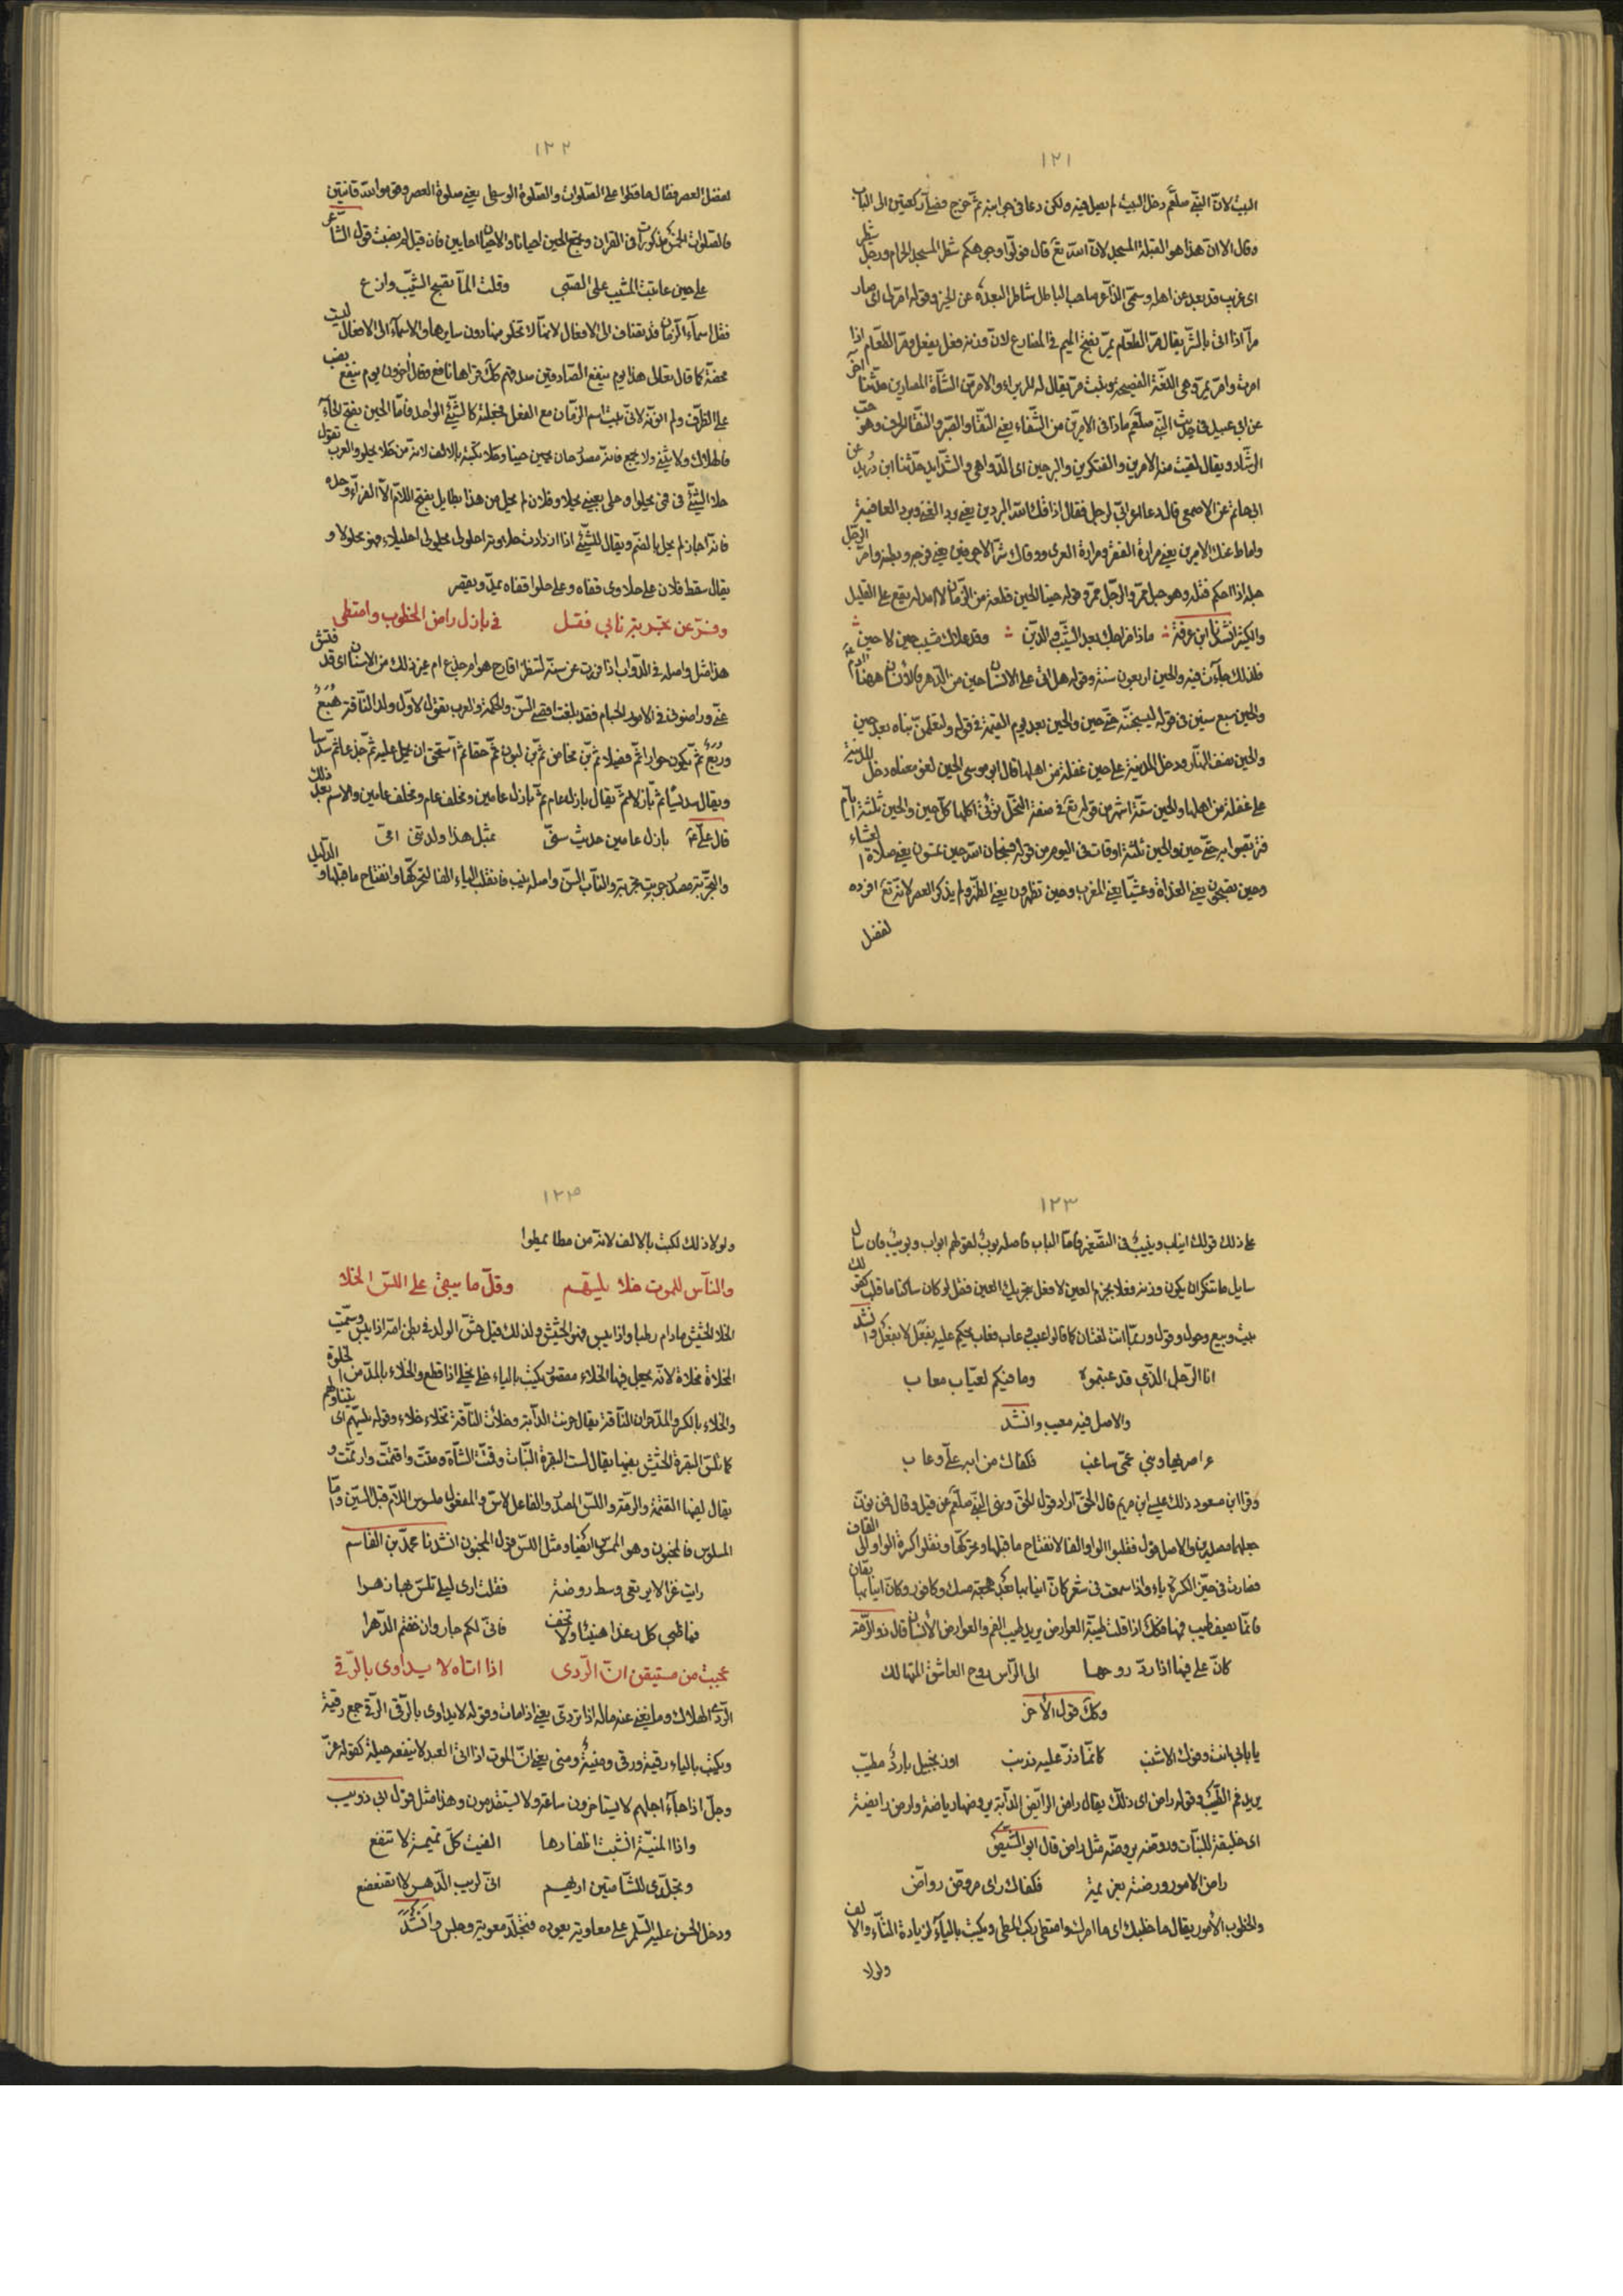 ١٢١
البيت لانّ النبّي صلّعم دخل البيت لم يصل فيه ولكن دعا فى جوانبه ثمّ خرج فصلّى ركعتين الى الباب
وقال الا انّ هذا هو القبلة المسجد لانّ الله تع قال فولّوا وجوهكم شطر المسجد الحرام ورجل شطر
اى غريب قد بعد عن اهله وسمّى الذّاعر صاحب الباطل شاطرا لبعده عن الخير وقوله امرّ لى اى صار
مرّا اذا اتى بالشّر يقال مرّ الطعّام يمرّ بفتح الميم فى المضارع لانّ وزنه فعل يفعل ومرّ الطعّام اذا
امرت وامرّ يمرّ وهى اللغّة الفصيحة
عن ابى عبيد فى حديث النبّي صلّعم ماذا فى الامرّين من الشّفاء يعنى الثفّا والصّبر والثفّا الحرف وهو حبّ
الرشّاد ويقال لقيت منه الامرين والفتكرين والبرحين اى الدّواهى والشّدايد حدّثنا ابن دريد عن
ابى حاتم عن الاصمعى قال دعا اعرابّي لرجل فقال اذاقك الله البردين يعنى برد الغنى وبرد العافية
واماط عنك الامرين يعنى مرارة الفقر ومرارة العرى ووقاك شرّ الاجوفين يعنى فرجه وبطنه وامرّ الرجّل
حبله اذا احكم فتله وهو حبل ممرّ والرجّل ممرّ وقوله حينا الحين قطعة من الزّمان لا امد له يقع على القليل
والكثير انشدنا ابن عرفة ؞ ماذا مزاحك بعد الشّيب والدّين ؞ وقد علاك شيب حين لا حين ؞
فلذلك جاءت فيه والحين اربعون سنة وقوله هل اتى على الانسان حين من الدّهر فالانسان ههنا ادم عم
والحين سبع سنين فى قوله ليسجننّه حتّى حين والحين بعد يوم القيمة فى قوله ولتعلمنّ نباه بعد حين
والحين نصف النّهار ودخل المدينة على حين غفلة من اهلها قال ابو موسى الحين لغو معناه دخل المدينة
على غفلة من اهلها والحين ستّة اشهر من قوله تع فى صفة النّخل تؤتى اكلها كلّ حين والحين ثلثة ايّام
فتربصّوا به حتّى حين والحين ثلثة اوقات فى اليوم من قوله فسبحان الله حين تمسون يعنى صلاة العشاء
وحين تصبحون يعنى الغداة وعشيّا يعنى المغرب وحين تظهرون يعنى الظّهر ولم يذكر العصر لانّه تع افرده
لفضل
١٢٢
لفضل العصر فقال حافظوا على الصّلوات والصّلوة الوسطى يعنى صلوة العصر وقوموا لله قانتين
فالصّلوات الخمس مذكورات فى القران وجمع الحين احيانا والاحيان احايين فان قيل لم نصبت قول الشّاعر
على حين عاتبت المشيب على الصّبى وقلت المّا تصح والشّيب وازع
فقل اسماء الزّمان قد تضاف الى الافعال لانهّا لا تخلو منها دون سايرها والاسماء الى الافعال ليست
محضة كما قال تعالى هذا يوم ينفع الصّادقين صدقهم كذا قراها نافع وقال اخرون يوم ينفع نصب
على الظرّف ولم انوّنه لانّى بنيت اسم الزّمان مع الفعل فجعلته كالشّئ الواحد فامّا الحين بفتح الحاء
فالهلاك ولا يثنّى ولا يجمع فانّه مصدر حان يحين حينا وحلا تكتبه بالالف لانّه من حلا يحلو والعرب تقول
حلا الشّئ فى فمى يحلوا وحلى بعينى يحلا وفلان لم يحل من هذا بطايل بفتح اللاّم الاّ الفراّء وحده
فانّه اجاز لم يحل بالضّم ويقال للشّئ اذا ازدادت حلاوته احلولى يحلولى احليلاء فهو محلولا و
يقال سقط فلان على حلاوى قفاه وعلى حلوا قفاه يمدّ ويقصر
وفرّ عن تجربة نابى فقل فى بازل راض الخطوب وامتطى
هذا مثل واصله فى الدّواب اذا فررت عن سنّه لتنظر اقارح هو ام جذع ام غير ذلك من الاسنان اى قد فتّش
عنّى وراضونى فى الامور الجسام فقد بلغت اقصى السّن والحكمة والعرب تقول لاوّل ولد النّاقة هُبَع
ورُبَع ثمّ يكون حوارا ثمّ فصيلا ثمّ بن مخاض ثمّ بن لبون ثمّ حقا ثمّ استحق ان يحمل عليه ثمّ جذعا ثمّ سديسا
ويقال سدسًا ثمّ بازلا ثمّ يقال بازل عام ثمّ بازل عامين ومخلف عام ومخلف عامين والاسم بعد ذلك
قال علّى عم بازل عامين حديث سنّى بمثل هذا ولدتنى امىّ
والتجّربة مصدر جربت تجربة والنّاب السّن واصله نيب فانقلب الياء الفا لتحركّها وانفتاح ما قبلها و الدّليل
١٢٣
على ذلك قولك انياب ونييب فى التصّغير فامّا الباب فاصله بوب لقولهم ابواب وبويب فان سال
سايل ما تنكر ان يكون وزنه فعلا بجزم العين لا فعل بتحريك العين فقل لو كان ساكنا ما قلب كقولك
بيت وبيع وحول وقول وربمّا اتت لغتان كما قالوا عيب وعاب فعاب يحكم عليه بفعل لا بفعل وانشد
انا الرّجل الذّى قد عبتموه وما فيكم لعيّاب معاب
والاصل فيه معيب وانشد
فكفاك من ابر علّى وعاب
وقرا ابن مسعود ذلك عيسى ابن مريم قال الحقّ اراد قول الحقّ ونهى النّبي صلّعم عن قيل وقال فمن نوّن
جعلهما مصدرين والاصل قول فقلبوا الواو الفا لانفتاح ما قبلها وتحركّها ونقلوا كسرة الواو الى القاف
فصارت فى حيّز الكسرة ياء واذا سمعت فى شعر كانّ انيابها بعد هجعة مسك وكافور وكانّ انيابها يقال
فانّما تصيف طيب فمها فكك اذا قلت طيبّة العوارض يريد طيب الفم والعوارض الاسنان قال ذو الرّمّة
كانّ على فيها اذا ردّ روحها الى الرّاس روح العاشق المتهالك
وكك قول الاخر
يا بابى انت وفوك الاشنب كانمّا ذرّ عليه زرنب او زنجبيل بارد مطيّب
يريد فم الطيّب وقوله راض اى ذلّل يقال راض الرّايض الدّابة يروضها رياضة وارض رايضة
اى خليقة للنبّات وروّضه يروضّه مثل راض قال ابو الشّيص
راض الامور ورضنه بعزيمة فكفاك راى مروضّ رواض
والخطوب الامور يقال ما خطبك اى ما امرك وامتطى ركب المطى ويكتب بالياء لزيادة التاّء والالف
ولولا
١٢٤
ولولا ذلك لكتبت بالالف لانهّ من مطا يمطوا
والنّاس للموت خلا يلسّهم وقلّ ما يبقى على اللّس الخلا
الخلا الحشيش ما دام رطبا واذا يبس فهو الحشيش ولذلك قيل حشّ الولد فى بطن امّه اذا يبس وسمّيت
المخلاة مخلاة لانّه يجعل فيها الخلاء مقصور يكتب بالياء خلى يخلى اذا قطع والخلاء بالمدّ من الخلوة
والخلاء بالكسر والمدّ حران النّاقة يقال حرنت الدّابة وخلات النّاقة تخلاء خلاء وقوله يلسّهم اى يتناولهم
كما تلسّ البقرة الحشيش بفيها يقال لست البقرة النّبات وقمّت الشّاة ورمّت واقتمّت وارتمّت و
يقال لفيها المقمّة والمرمّة واللّس المصدر والفاعل لاسّ والمفعول ملسوس اللاّم قبل السّين وامّا
المسلوس فالمجنون وهو الممسوس ايضا ومثل اللّس قول المجنون انشدنا محمّد بن القاسم
رايت غزالا يرتعى وسط روضة فقلت ارى ليلى تلسّ بها زهرا
فيا ظبى كل رغدا هنيئا ولا تخف فانّى لكم جار وان خفتم الدّهرا
عجبت من مستيقن انّ الرّدى اذا اتاه لا يداوى بالرّقى
الرّدى الهلاك وما يغنى عنه ماله اذا تردّى يعنى اذا مات وقوله لا يداوى بالرّقى الرّقى جمع رقية
ويكتب بالياء رقية ورقى ومنية ومنى يعنى انّ الموت اذا اتى العبد لا ينفعه حيلة كقوله عزّ
وجلّ اذا جاء اجلهم لا يستاخرون ساعة ولا يستقدمون وهذا مثل قول ابى ذويب
واذا المنيّة انشبت اظفارها الفيت كلّ تميمة لا تنفع
وتجلّدى للشّامتين اريهم انّى لريب الدّهر لا اتضعضع
ودخل الحسن عليه السّلم على معاوية يعوده فتجلّد معوية وجلس وانشد